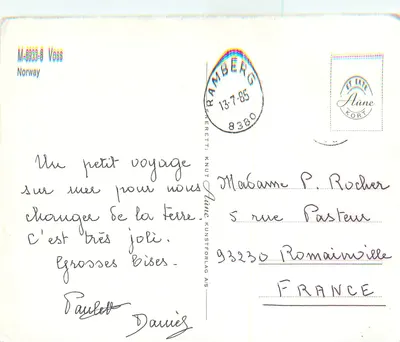 M-8933-8 Voss
Norway
RAMBERG
13-7-85
8380
ET EKTE
Aune
KORT
ENERETT: KNUT Aune KUNSTFORLAG AS
Un petit voyage
sur mer pour nous
changer de la terre.
C'est très joli.
Grosses bises.
Paulette
Daniel
Madame P. Rocher
5 rue Pasteur
93230 Romainville
FRANCE